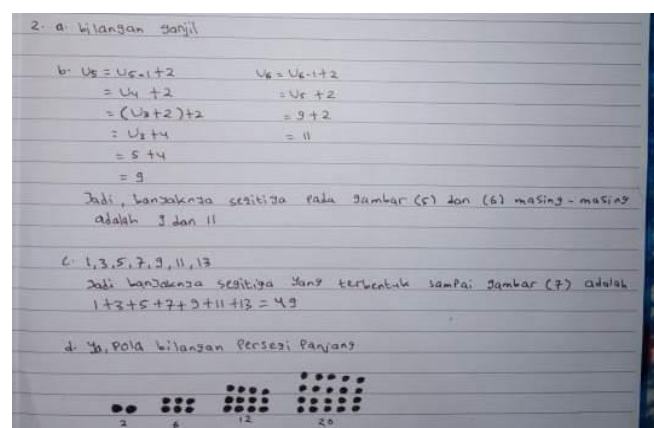 2. a. bilangan ganjil
b. U5 = U5-1+2 U6 = U6-1+2
= U4 +2 = U5 +2
= (U3+2)+2 = 9+2
= U3+4 = 11
= 5 +4
= 9
Jadi, banyaknya segitiga pada gambar (5) dan (6) masing-masing
adalah 9 dan 11
c. 1,3,5,7,9,11,13
Jadi banyaknya segitiga yang terbentuk sampai gambar (7) adalah
1+3+5+7+9+11+13 = 49
d. Ya, Pola bilangan Persegi Panjang
2 6 12 20